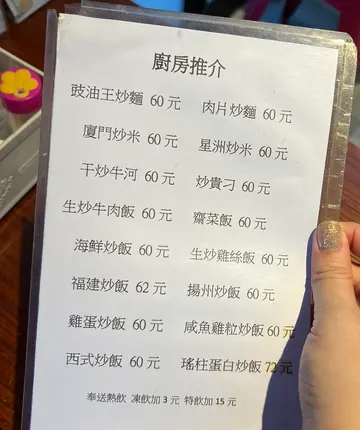 廚房推介
豉油王炒麵 60 元 肉片炒麵 60 元
廈門炒米 60 元 星洲炒米 60 元
干炒牛河 60 元 炒貴刁 60 元
生炒牛肉飯 60 元 齋菜飯 60 元
海鮮炒飯 60 元 生炒雞絲飯 60 元
福建炒飯 62 元 揚州炒飯 60 元
雞蛋炒飯 60 元 咸魚雞粒炒飯 60 元
西式炒飯 60 元 瑤柱蛋白炒飯 72 元
奉送熱飲 凍飲加 3 元 特飲加 15 元